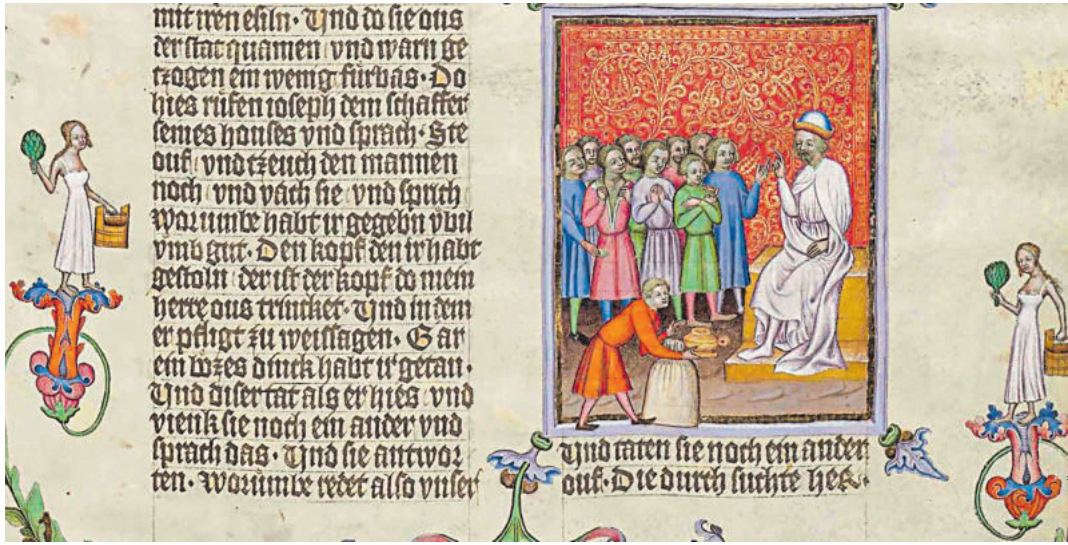 mit iren eseln · Und do sie ous
der stat quamen vnd warn ge
tzogen ein wenig fürbas · Do
hies rüfen ioseph dem schaffer
seines houses vnd sprach · Ste
ouf vnd tzeuch den mannen
noch vnd vach sie vnd sprich
Worumbe habt ir gegebn vbil
vmb gut · Den kopf den ir habt
gestoln der ist der kopf do mein
herre ous trincket · Und in dem
er pfligt zu weissagen · Gar
ein bozes dinck habt ir getan ·
Und diser tat als er hies vnd
vienk sie noch ein ander vnd
sprach das · Und sie antwor
ten · Worumbe redet also vnser
Und taten sie noch ein ander
ouf · Die durch suchte her ·